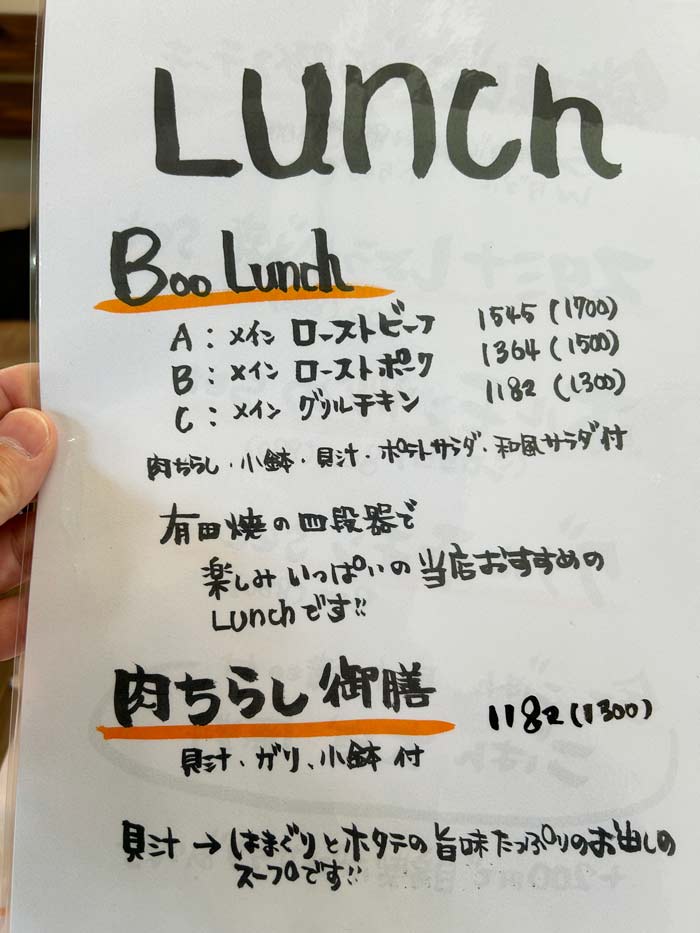 Lunch
Boo Lunch
A：メイン ローストビーフ 1545（1700）
B：メイン ローストポーク 1364（1500）
C：メイン グリルチキン 1182（1300）
肉ちらし・小鉢・貝汁・ポテトサラダ・和風サラダ付
有田焼の四段器で
楽しみいっぱいの当店おすすめの
Lunchです!!
肉ちらし御膳 1182（1300）
貝汁・ガリ、小鉢付
貝汁→はまぐりとホタテの旨味たっぷりのお出しの
スープです!!